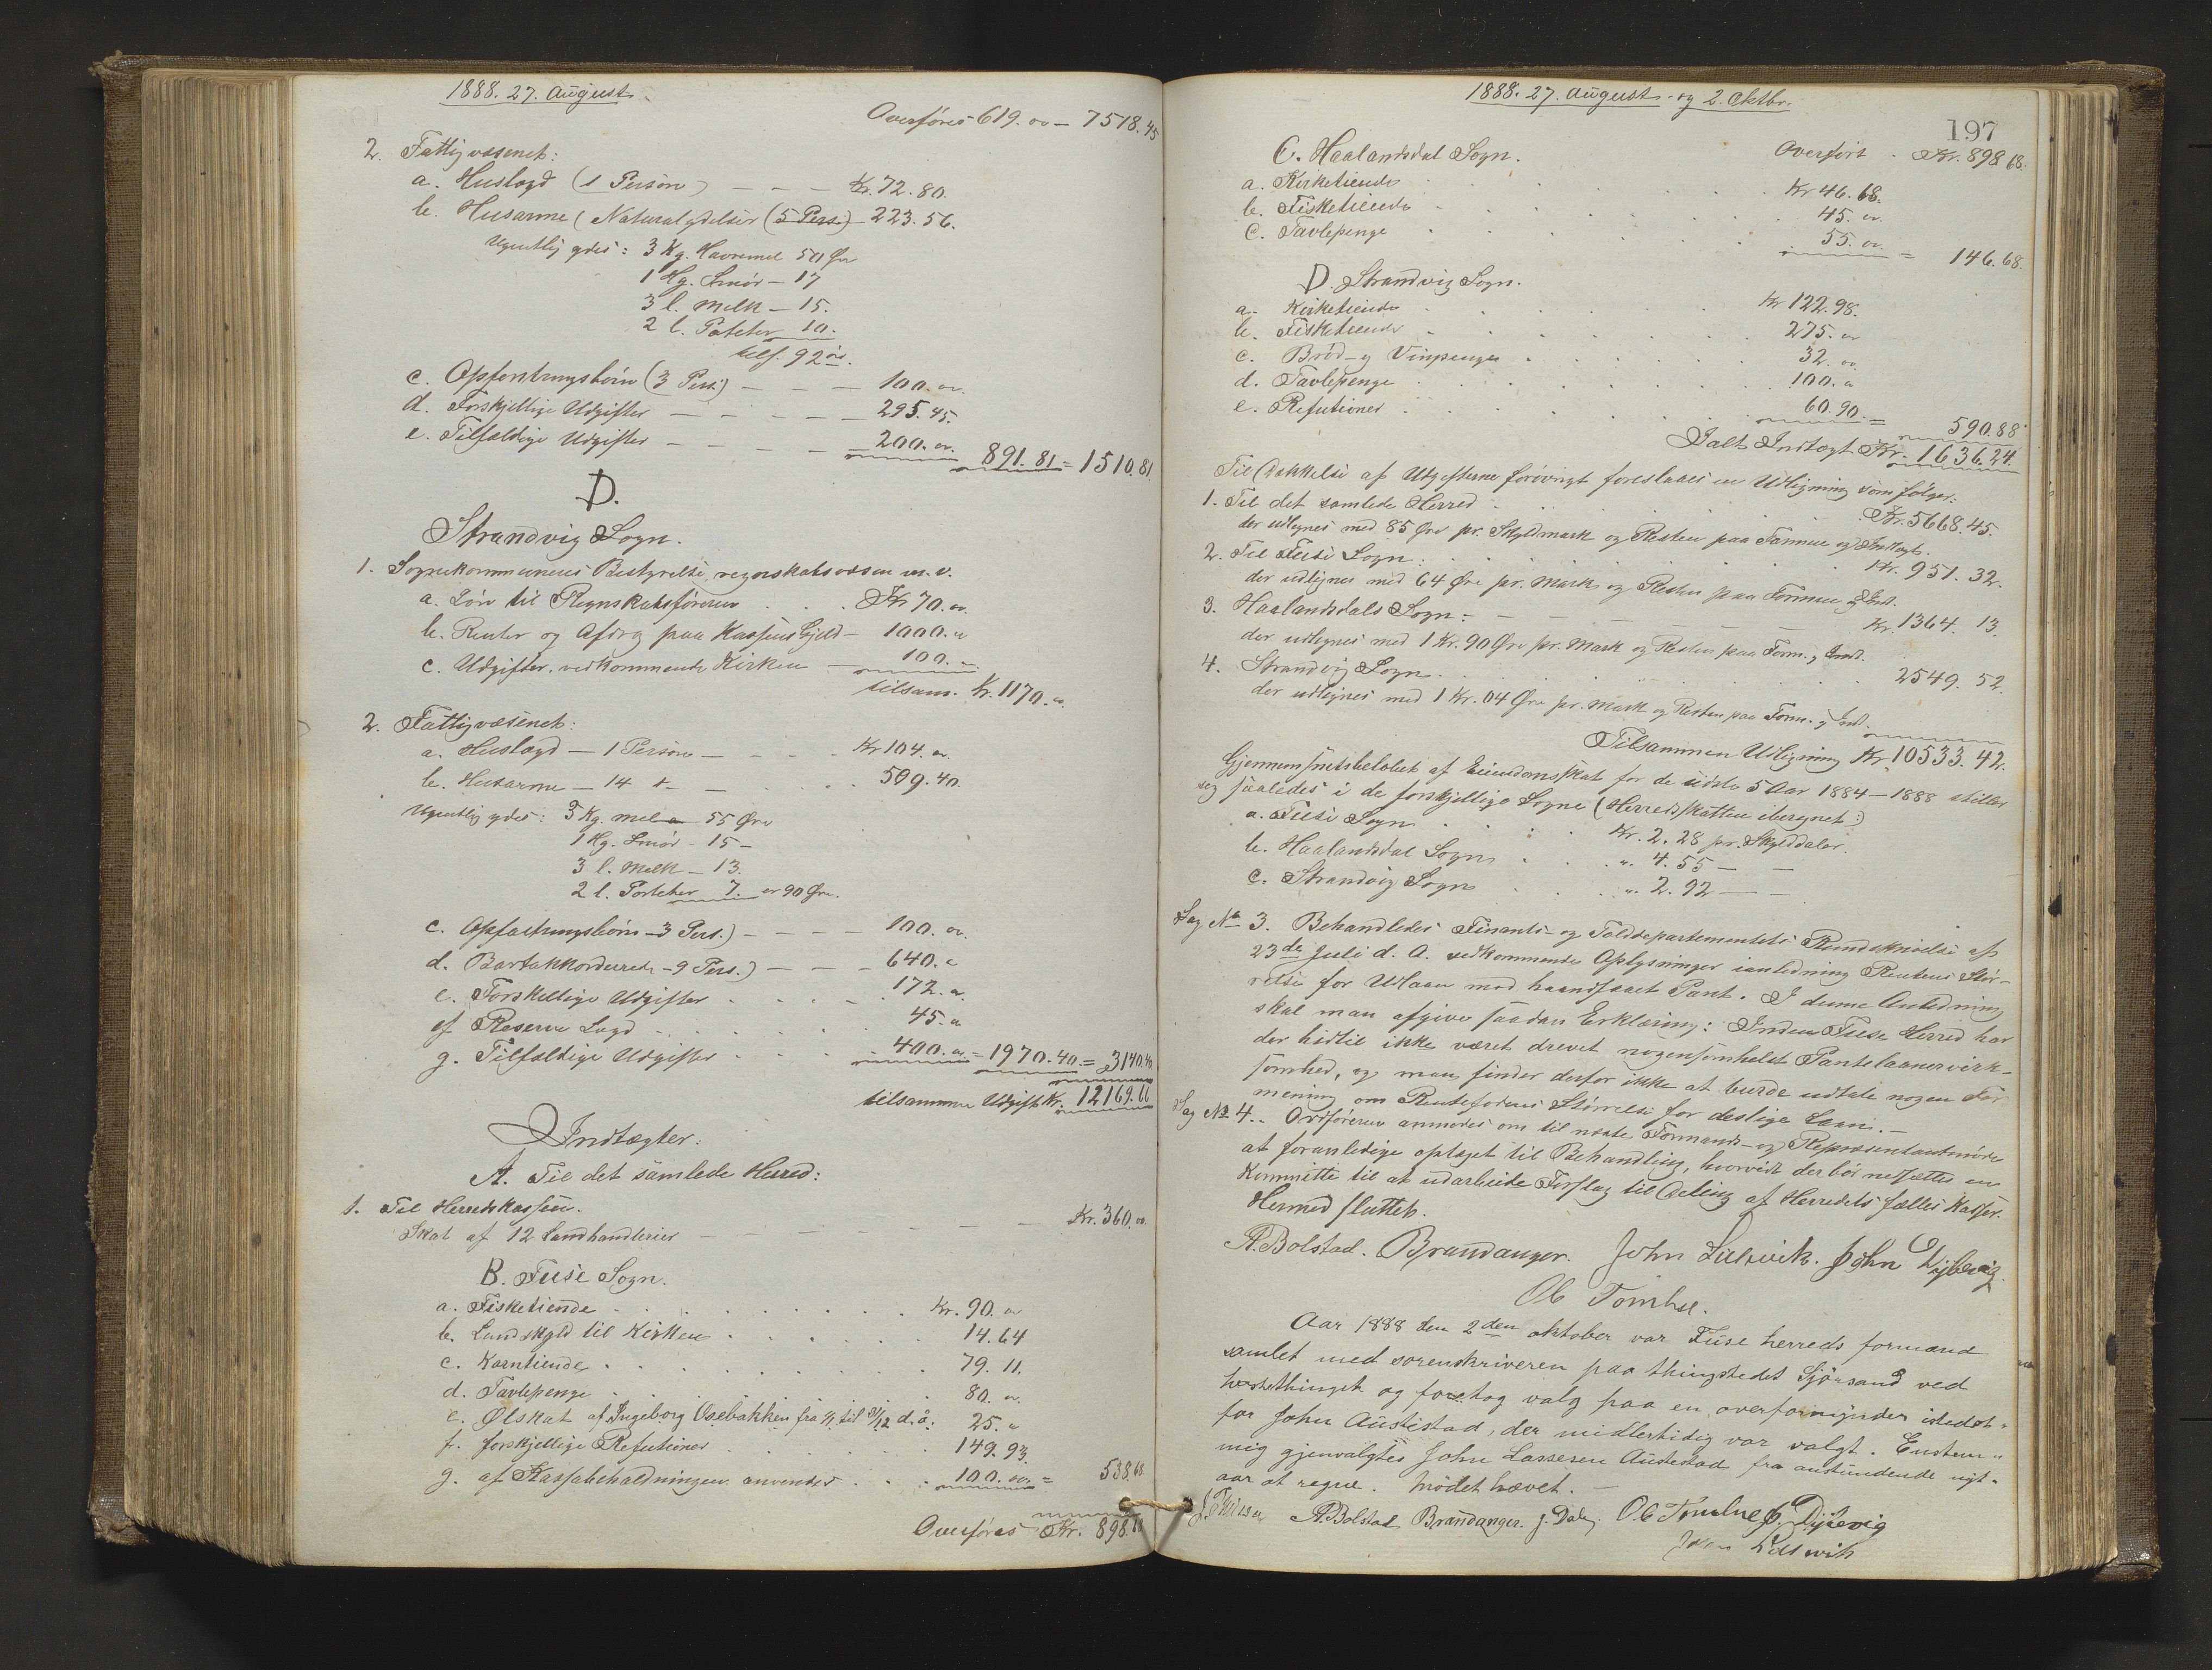 1888. 27. August.
Overføres 619. oo — 7518.45
2. Fattigvæsenet:
a. Huslægd (1 Person) — — — Kr. 72.80.
b. Husarme (Naturalydelser (5 Pers.) — 223.56.
Ugentlig ydes: 3 Kg. Havremel 50 Øre
1 Hg. Smør — 17
3 l. Melk — 15.
2 l. Poteter 10.
tils. 92 øre.
c. Opfostringsbørn (3 Pers.) — — — 100. oo.
d. Forskjellige Udgifter — — — — 295.45.
e. Tilfældige Udgifter — — — — 200. oo. 891.81 = 1510.81
D.
Strandvig Sogn.
1. Sognekommunens Bestyrelse, regnskabsvæsen m. v.
a. Løn til Regnskabsføreren . . . Kr 70. oo.
b. Renter og Afdrag paa Kassens Gjeld — 1000. "
c. Udgifter vedkommende Kirken — 100. —
tilsam. Kr. 1170. oo.
2. Fattigvæsenet:
a. Huslægd — 1 Person — — — Kr 104. oo.
b. Husarme — 14 — — . . . 509.40.
Ugentlig ydes: 3 Kg. mel 55 Øre
1 Hg. Smør — 15 —
3 l. Melk — 13.
2 l. Poteter 7. er 90 Øre.
c. Opfostringsbørn — 3 Pers.) — — — — 100. oo.
d. Bortakkorderede — 9 Pers.) — — — 640. "
e. Forskellige Udgifter . . . . 172. "
f. Reserve Lægd . . . . . 45. "
g. Tilfældige Udgifter . . . . 400. oo = 1970.40. = 3140.40
tilsammen Udgift Kr. 12169.66
Indtægter:
A. Til det samlede Herred:
1. Til Herredskassen.
Skat af 12 Landhandlerier — — — — — — Kr. 360. oo.
B. Fuse Sogn.
a. Fisketiende . . . . . . . . Kr. 90. oo
b. Landskyld til Kirken . . . . . . 14.64
c. Korntiende . . . . . . . . 79.11.
d. Tavlepenge . . . . . . . . 80. oo.
e. Ølskat af Ingeborg Osebakken fra 1/1 til 31/12 d. å. 25. "
f. forskjellige Refutioner . . . . . . 149.93.
g. af Kassabeholdningen anvendes . . . 100. oo. = 538.68
Overføres Kr. 898.68
1888. 27. August og 2. Oktbr.
197
C. Haalandsdal Sogn. Overført . Kr. 898.68.
a. Kirketiende . . . . . . Kr 46.68.
b. Fisketiende . . . . . . . 45. oo.
c. Tavlepenge . . . . . . . 55. oo. = 146.68.
D. Strandvig Sogn.
a. Kirketiende . . . . . . Kr 122.98.
b. Fisketiende . . . . . . . 275. oo
c. Brød- og Vinpenge . . . . . . 32. oo
d. Tavlepenge . . . . . . . 100. "
e. Refutioner . . . . . . . 60.90. = 590.88
Ialt Indtægt Kr. 1636.24.
Til Dækkelse af Udgifterne forøvrigt foreslaaes en Udligning som følger:
1. Til det samlede Herred . . . . . . . Kr. 5668.45.
der udlignes med 85 Øre pr. Skyldmark og Resten paa Formue og Indtægt.
2. Til Fuse Sogn: . . . . . . . Kr. 951.32.
der udlignes med 64 Øre pr. Mark og Resten paa Formue og Ind.
3. Haalandsdals Sogn: — — — — — — Kr. 1364.13.
der udlignes med 1 Kr. 90 Øre pr. Mark og Resten paa Form. og Ind.
4. Strandvig Sogn . . . . . . . . 2549.52.
der udlignes med 1 Kr. 04 Øre pr. Mark og Resten paa Form. og Ind.
Tilsammen Udligning Kr. 10533.42.
Gjennemsnitsbeløbet af Eiendomsskat for de sidste 5 Aar 1884–1888 stiller
sig saaledes i de forskjellige Sogne (Herredsskatten iberegnet:)
a. Fuse Sogn . . . . Kr. 2.28 pr. Skylddaler.
b. Haalandsdal Sogn . . . " 4.55 — —
c. Strandvig Sogn . . . " 2.92 — —
Sag No 3. Behandledes Finants- og Tolddepartementets Rundskrivelse af
23de Juli d. A. vedkommende Oplysninger i anledning Rentens Stør-
relse for Udlaan mod haandfaaet Pant. I denne Anledning
skal man afgive saadan Erklæring: Inden Fuse Herred har
der hidtil ikke været drevet nogensomhelst Pantelaanervirk-
somhed, og man finder derfor ikke at burde udtale nogen For
mening om Rentefodens Størrelse for deslige Laan. —
Sag No 4. Ordføreren anmodes om til næste Formands- og Repræsentantmøde
at foranledige optaget til Behandling, hvorvidt der bør nedsættes en
Kommitte til at udarbeide Forslag til Deling af Herredets fælles Kasser.
Hermed sluttet.
A. Bolstad. Brandanger. John Lidsvik. John Dyblevig.
Ole Tombre.
Aar 1888 den 2den oktober var Fuse herreds formænd
samlet med sorenskriveren paa thingstedet Sjøsand ved
høstethinget og foretog valg paa en overformynder istedet-
for John Austestad, der midlertidig var valgt. Enstem-
mig gjenvalgtes John Lassesen Austestad fra anstundende nyt-
aar at regne. Mødet hævet. —
A. Bolstad Brandanger. J. Dale. Ole Tombre J. Dyblevig
John Lidsvik